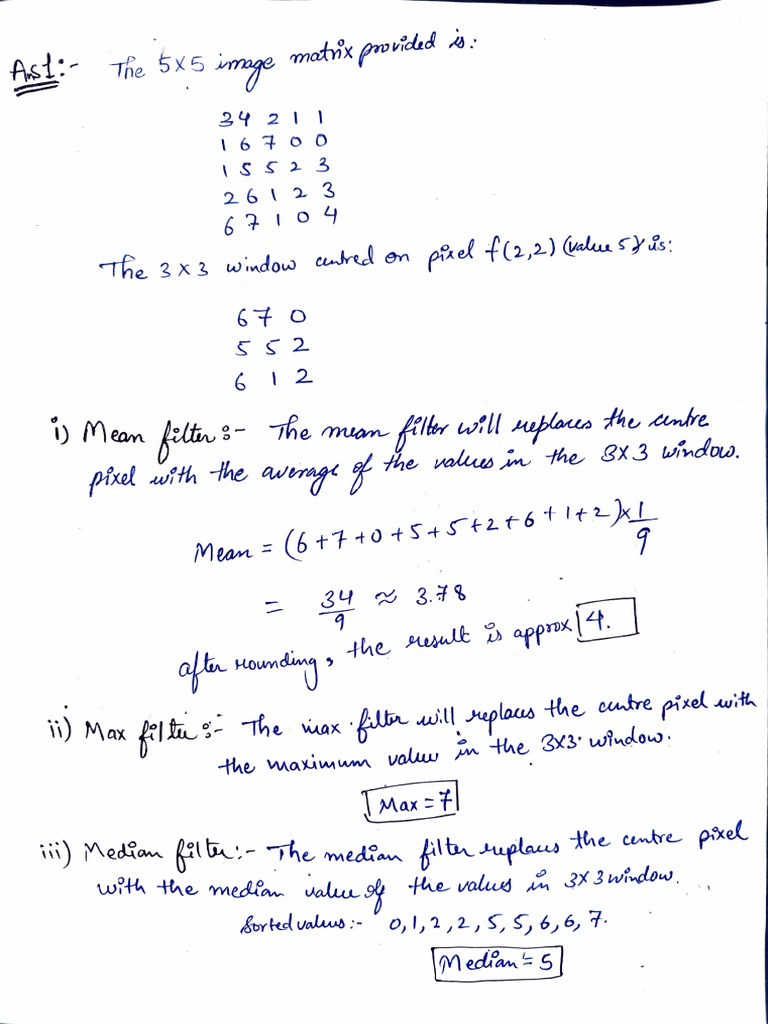 Ans1:- The 5×5 image matrix provided is:
3 4 2 1 1
1 6 7 0 0
1 5 5 2 3
2 6 1 2 3
6 7 1 0 4
The 3×3 window centred on pixel f(2,2) (value 5) is:
6 7 0
5 5 2
6 1 2
i) Mean filter:- The mean filter will replaces the centre
pixel with the average of the values in the 3×3 window.
Mean = (6+7+0+5+5+2+6+1+2)×1/9
= 34/9 ≈ 3.78
after rounding, the result is approx 4.
ii) Max filter:- The max filter will replaces the centre pixel with
the maximum value in the 3×3 window.
Max = 7
iii) Median filter:- The median filter replaces the centre pixel
with the median value of the values in 3×3 window.
Sorted values:- 0,1,2,2,5,5,6,6,7.
Median = 5